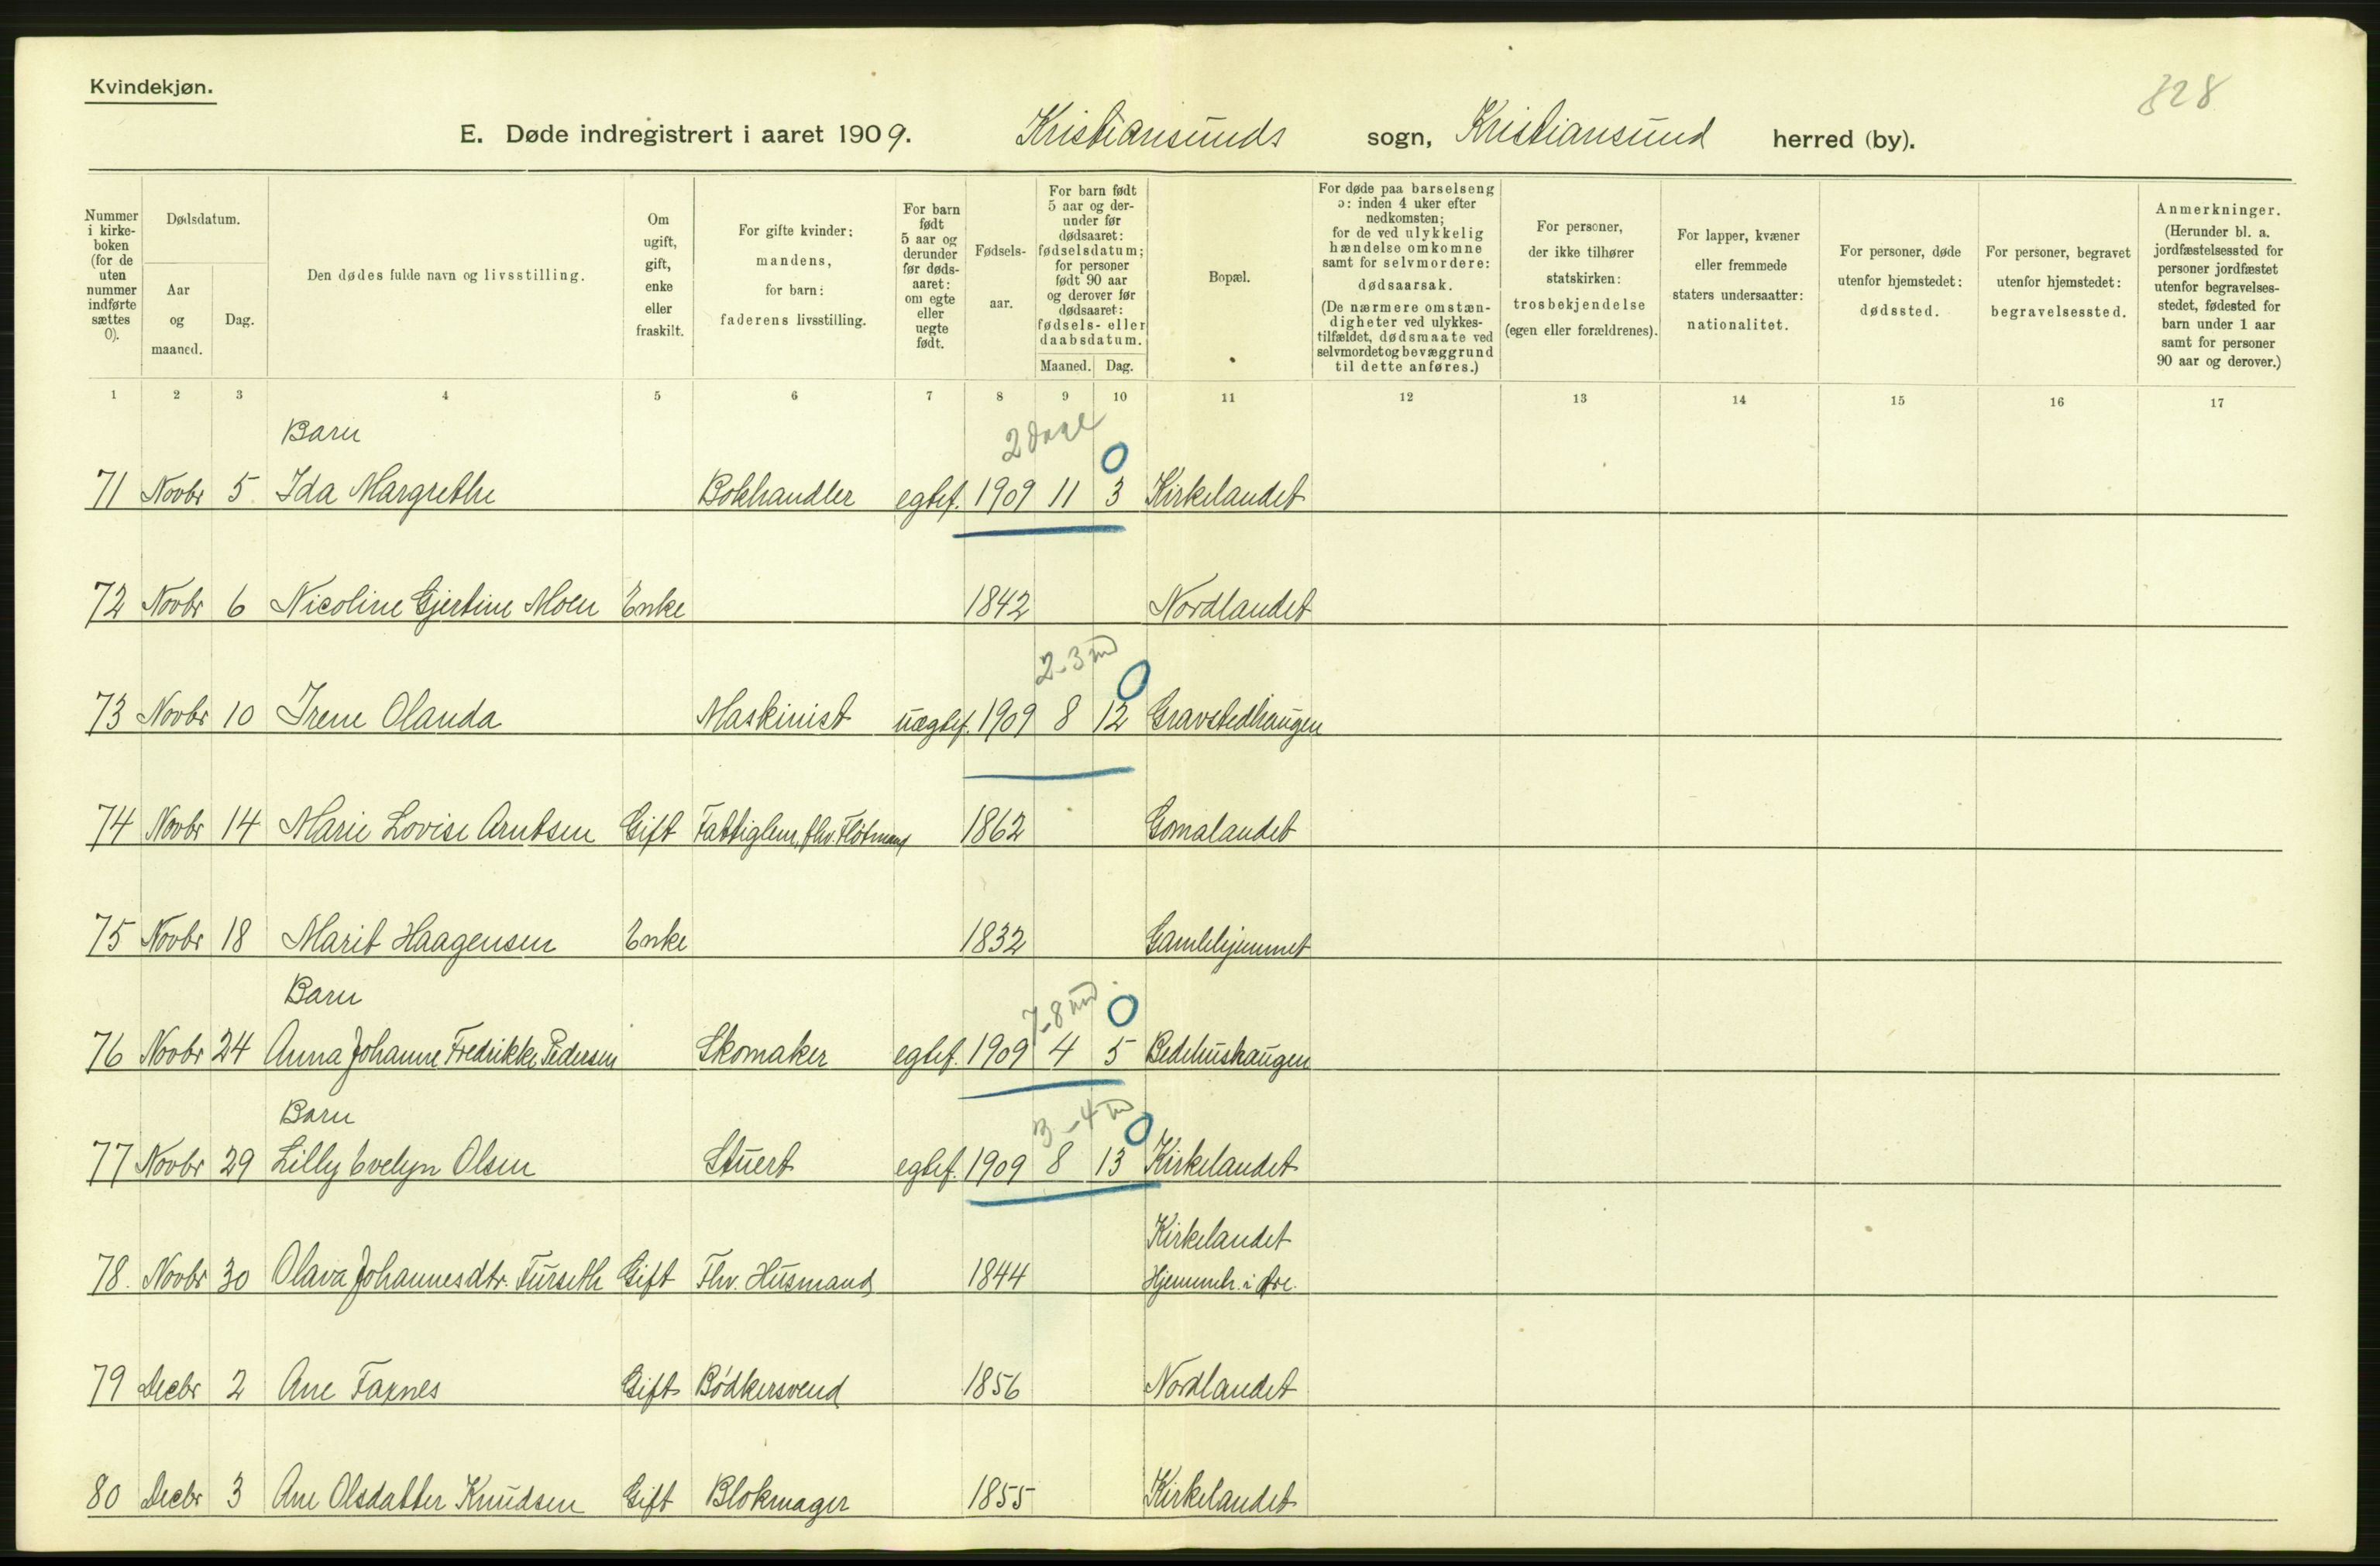 Kvindekjøn.
328
E. Døde indregistrert i aaret 1909. Kristiansunds sogn, Kristiansund herred (by).
Nummer i kirke-boken (for de uten nummer indførte sættes 0).
Dødsdatum.
Aar og maaned.
Dag.
Den dødes fulde navn og livsstilling.
Om ugift, gift, enke eller fraskilt.
For gifte kvinder: mandens, for barn: faderens livsstilling.
For barn født 5 aar og derunder før døds-aaret: om egte eller uegte født.
Fødsels-aar.
For barn født 5 aar og der-under før dødsaaret: fødselsdatum; for personer født 90 aar og derover før dødsaaret: fødsels- eller daabsdatum.
Maaned. Dag.
Bopæl.
For døde paa barselseng ɔ: inden 4 uker efter nedkomsten; for de ved ulykkelig hændelse omkomne samt for selvmordere: dødsaarsak. (De nærmere omstæn-digheter ved ulykkes-tilfældet, dødsmaate ved selvmordet og bevæggrund til dette anføres.)
For personer, der ikke tilhører statskirken: trosbekjendelse (egen eller forældrenes).
For lapper, kvæner eller fremmede staters undersaatter: nationalitet.
For personer, døde utenfor hjemstedet: dødssted.
For personer, begravet utenfor hjemstedet: begravelsessted.
Anmerkninger. (Herunder bl. a. jordfæstelsessted for personer jordfæstet utenfor begravelses-stedet, fødested for barn under 1 aar samt for personer 90 aar og derover.)
1 2 3 4 5 6 7 8 9 10 11 12 13 14 15 16 17
Barn
2 dage
0
71 Novbr 5. Ida Margrethe Bokhandler egtef. 1909 11 3 Kirkelandet
72 Novbr 6 Nicoline Gjertine Moen Enke 1842 Nordlandet
2-3 md
0
73 Novbr 10 Irene Olanda Maskinist uægtef. 1909 8 12 Gravstedhaugen
74 Novbr 14 Marie Lovise Arntsen Gift Fattiglem, fhv. Flötmand 1862 Gomalandet
75 Novbr 18 Marit Haagensen Enke 1832 Gamlehjemmet
Barn
7-8 md.
0
76 Novbr 24 Anna Johanne Fredrikke Pedersen Skomaker egtef. 1909 4 5 Bedehushaugen
Barn
3-4 m
0
77 Novbr 29 Lilly Evelyn Olsen Stuert egtef. 1909 8 13 Kirkelandet
Kirkelandet
78. Novbr 30 Olava Johannesdtr. Furseth Gift Fhv. Husmand 1844 Hjemmeh. i Øre.
79 Decbr 2 Ane Faxnes Gift Bödkersvend 1856 Nordlandet
80 Decbr 3 Ane Olsdatter Knudsen Gift Blokmager 1855 Kirkelandet